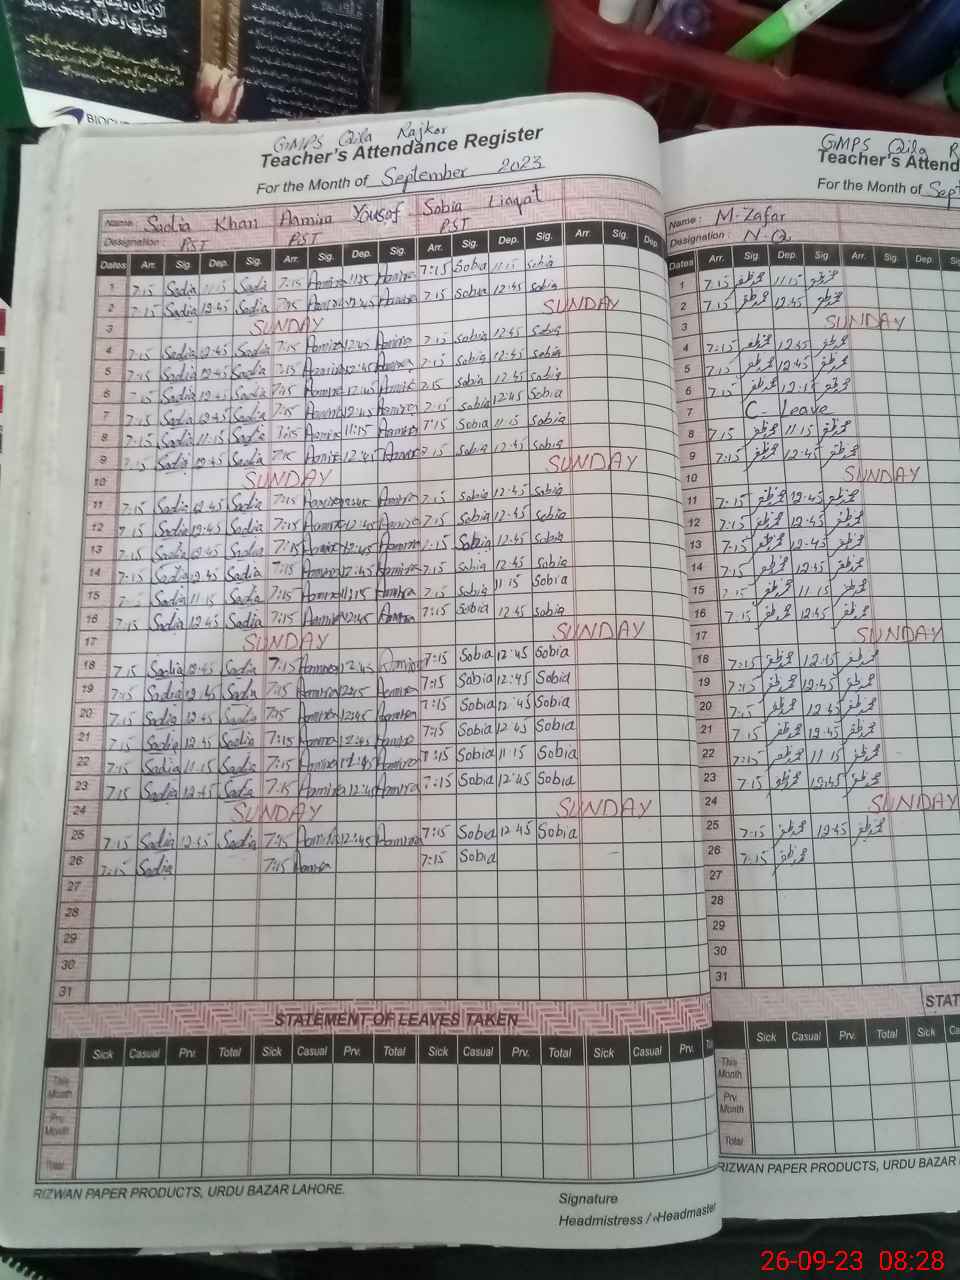 GMPS Qila Rajkor
Teacher's Attendance Register
For the Month of September 2023
Name : Sadia Khan Aamira Yousof Sobia Liaqat
Designation : PST PST PST
Dates Arr. Sig. Dep. Sig. Arr. Sig. Dep. Sig. Arr. Sig. Dep. Sig. Arr. Sig. Dep.
1 7:15 Sadia 11:15 Sadia 7:15 Aamira 11:15 Aamira 7:15 Sobia 11:15 Sobia
2 7:15 Sadia 12:45 Sadia 7:15 Aamira 12:45 Aamira 7:15 Sobia 12:45 Sobia
3 SUNDAY SUNDAY
4 7:15 Sadia 12:45 Sadia 7:15 Aamira 12:45 Aamira 7:15 Sobia 12:45 Sobia
5 7:15 Sadia 12:45 Sadia 7:15 Aamira 12:45 Aamira 7:15 Sobia 12:45 Sobia
6 7:15 Sadia 12:45 Sadia 7:15 Aamira 12:45 Aamira 7:15 Sobia 12:45 Sobia
7 7:15 Sadia 12:45 Sadia 7:15 Aamira 12:45 Aamira 7:15 Sobia 12:45 Sobia
8 7:15 Sadia 11:15 Sadia 7:15 Aamira 11:15 Aamira 7:15 Sobia 11:15 Sobia
9 7:15 Sadia 12:45 Sadia 7:15 Aamira 12:45 Aamira 7:15 Sobia 12:45 Sobia
10 SUNDAY SUNDAY
11 7:15 Sadia 12:45 Sadia 7:15 Aamira 12:45 Aamira 7:15 Sobia 12:45 Sobia
12 7:15 Sadia 12:45 Sadia 7:15 Aamira 12:45 Aamira 7:15 Sobia 12:45 Sobia
13 7:15 Sadia 12:45 Sadia 7:15 Aamira 12:45 Aamira 7:15 Sobia 12:45 Sobia
14 7:15 Sadia 12:45 Sadia 7:15 Aamira 12:45 Aamira 7:15 Sobia 12:45 Sobia
15 7:15 Sadia 11:15 Sadia 7:15 Aamira 11:15 Aamira 7:15 Sobia 11:15 Sobia
16 7:15 Sadia 12:45 Sadia 7:15 Aamira 12:45 Aamira 7:15 Sobia 12:45 Sobia
17 SUNDAY SUNDAY
18 7:15 Sadia 12:45 Sadia 7:15 Aamira 12:45 Aamira 7:15 Sobia 12:45 Sobia
19 7:15 Sadia 12:45 Sadia 7:15 Aamira 12:45 Aamira 7:15 Sobia 12:45 Sobia
20 7:15 Sadia 12:45 Sadia 7:15 Aamira 12:45 Aamira 7:15 Sobia 12:45 Sobia
21 7:15 Sadia 12:45 Sadia 7:15 Aamira 12:45 Aamira 7:15 Sobia 12:45 Sobia
22 7:15 Sadia 11:15 Sadia 7:15 Aamira Aamira 7:15 Sobia 11:15 Sobia
23 7:15 Sadia 12:45 Sadia 7:15 Aamira 12:45 Aamira 7:15 Sobia 12:45 Sobia
24 SUNDAY SUNDAY
25 7:15 Sadia 12:45 Sadia 7:15 Aamira 12:45 Aamira 7:15 Sobia 12:45 Sobia
26 7:15 Sadia 7:15 Aamira 7:15 Sobia
27
28
29
30
31
STATEMENT OF LEAVES TAKEN
Sick Casual Prv. Total Sick Casual Prv. Total Sick Casual Prv. Total Sick Casual Prv.
This Month
Prv. Month
Total
RIZWAN PAPER PRODUCTS, URDU BAZAR LAHORE.
Signature
Headmistress / Headmaster
GMPS Qila R
Teacher's Attend
For the Month of Sept
Name : M-Zafar
Designation : N-Q
Dates Arr. Sig. Dep. Sig. Arr. Sig. Dep.
1 7:15 محمد ظفر 11:15 محمد ظفر
2 7:15 محمد ظفر 12:45 محمد ظفر
3 SUNDAY
4 7:15 محمد ظفر 12:45 محمد ظفر
5 7:15 محمد ظفر 12:45 محمد ظفر
6 7:15 محمد ظفر محمد ظفر
7 C- Leave
8 7:15 محمد ظفر 11:15 محمد ظفر
9 7:15 محمد ظفر 12:45 محمد ظفر
10 SUNDAY
11 7:15 محمد ظفر 12:45 محمد ظفر
12 7:15 محمد ظفر 12:45 محمد ظفر
13 7:15 محمد ظفر 12:45 محمد ظفر
14 7:15 محمد ظفر 12:45 محمد ظفر
15 7:15 محمد ظفر 11:15 محمد ظفر
16 7:15 محمد ظفر 12:45 محمد ظفر
17 SUNDAY
18 7:15 محمد ظفر 12:45 محمد ظفر
19 7:15 محمد ظفر 12:45 محمد ظفر
20 7:15 محمد ظفر 12:45 محمد ظفر
21 7:15 محمد ظفر 12:45 محمد ظفر
22 7:15 محمد ظفر 11:15 محمد ظفر
23 7:15 محمد ظفر 12:45 محمد ظفر
24 SUNDAY
25 7:15 محمد ظفر 12:45 محمد ظفر
26 7:15 محمد ظفر
27
28
29
30
31
STAT
Sick Casual Prv. Total Sick Casual
This Month
Prv. Month
Total
RIZWAN PAPER PRODUCTS, URDU BAZAR
26-09-23 08:28